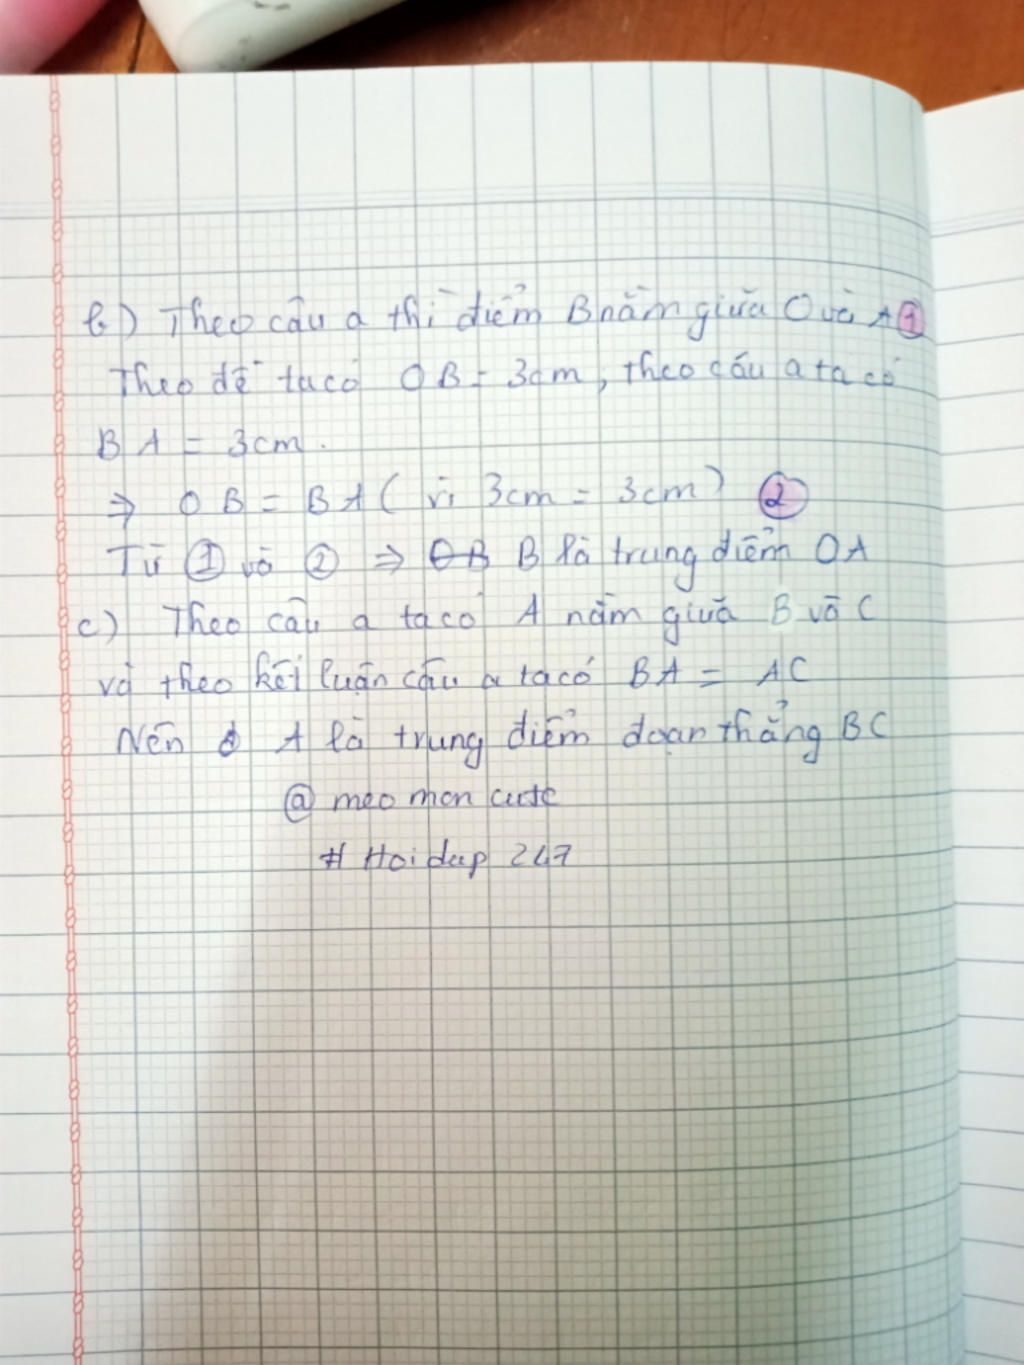 b) Theo câu a thì điểm B nằm giữa O và A ①
Theo đề ta có OB = 3cm, theo câu a ta có
BA = 3cm.
⇒ OB = BA ( vì 3cm = 3cm ) ②
Từ ① và ② ⇒ B là trung điểm OA
c) Theo câu a ta có A nằm giữa B và C
và theo kết luận câu a ta có BA = AC
Nên A là trung điểm đoạn thẳng BC
@ meo mon cute
# Hoidap 247